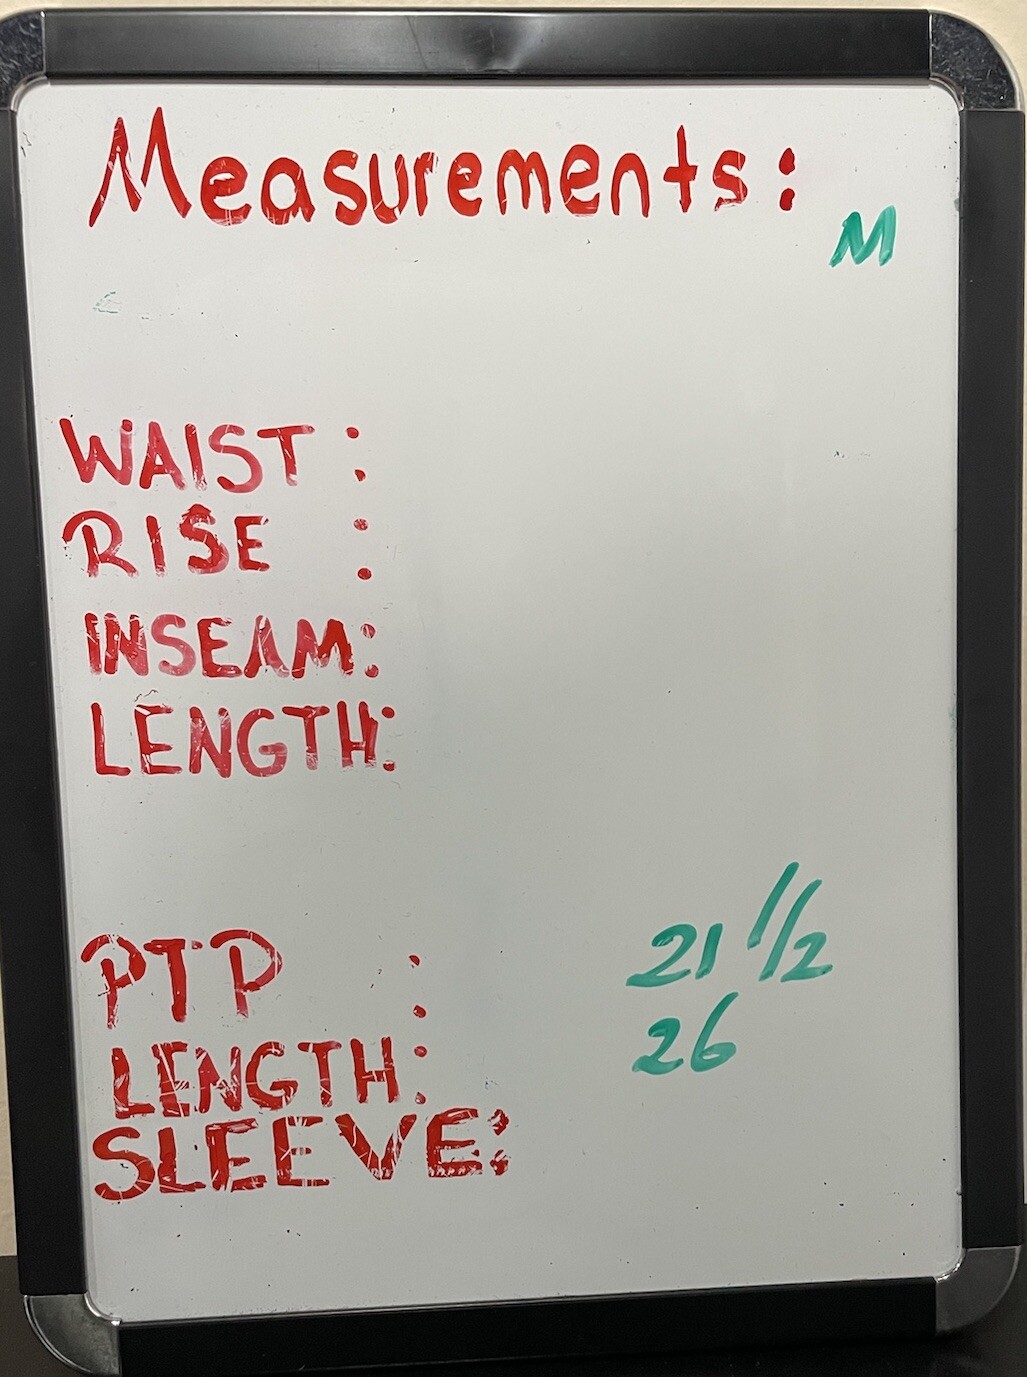 Measurements:
M
WAIST :
RISE :
INSEAM:
LENGTH:
PTP : 21 1/2
LENGTH: 26
SLEEVE: